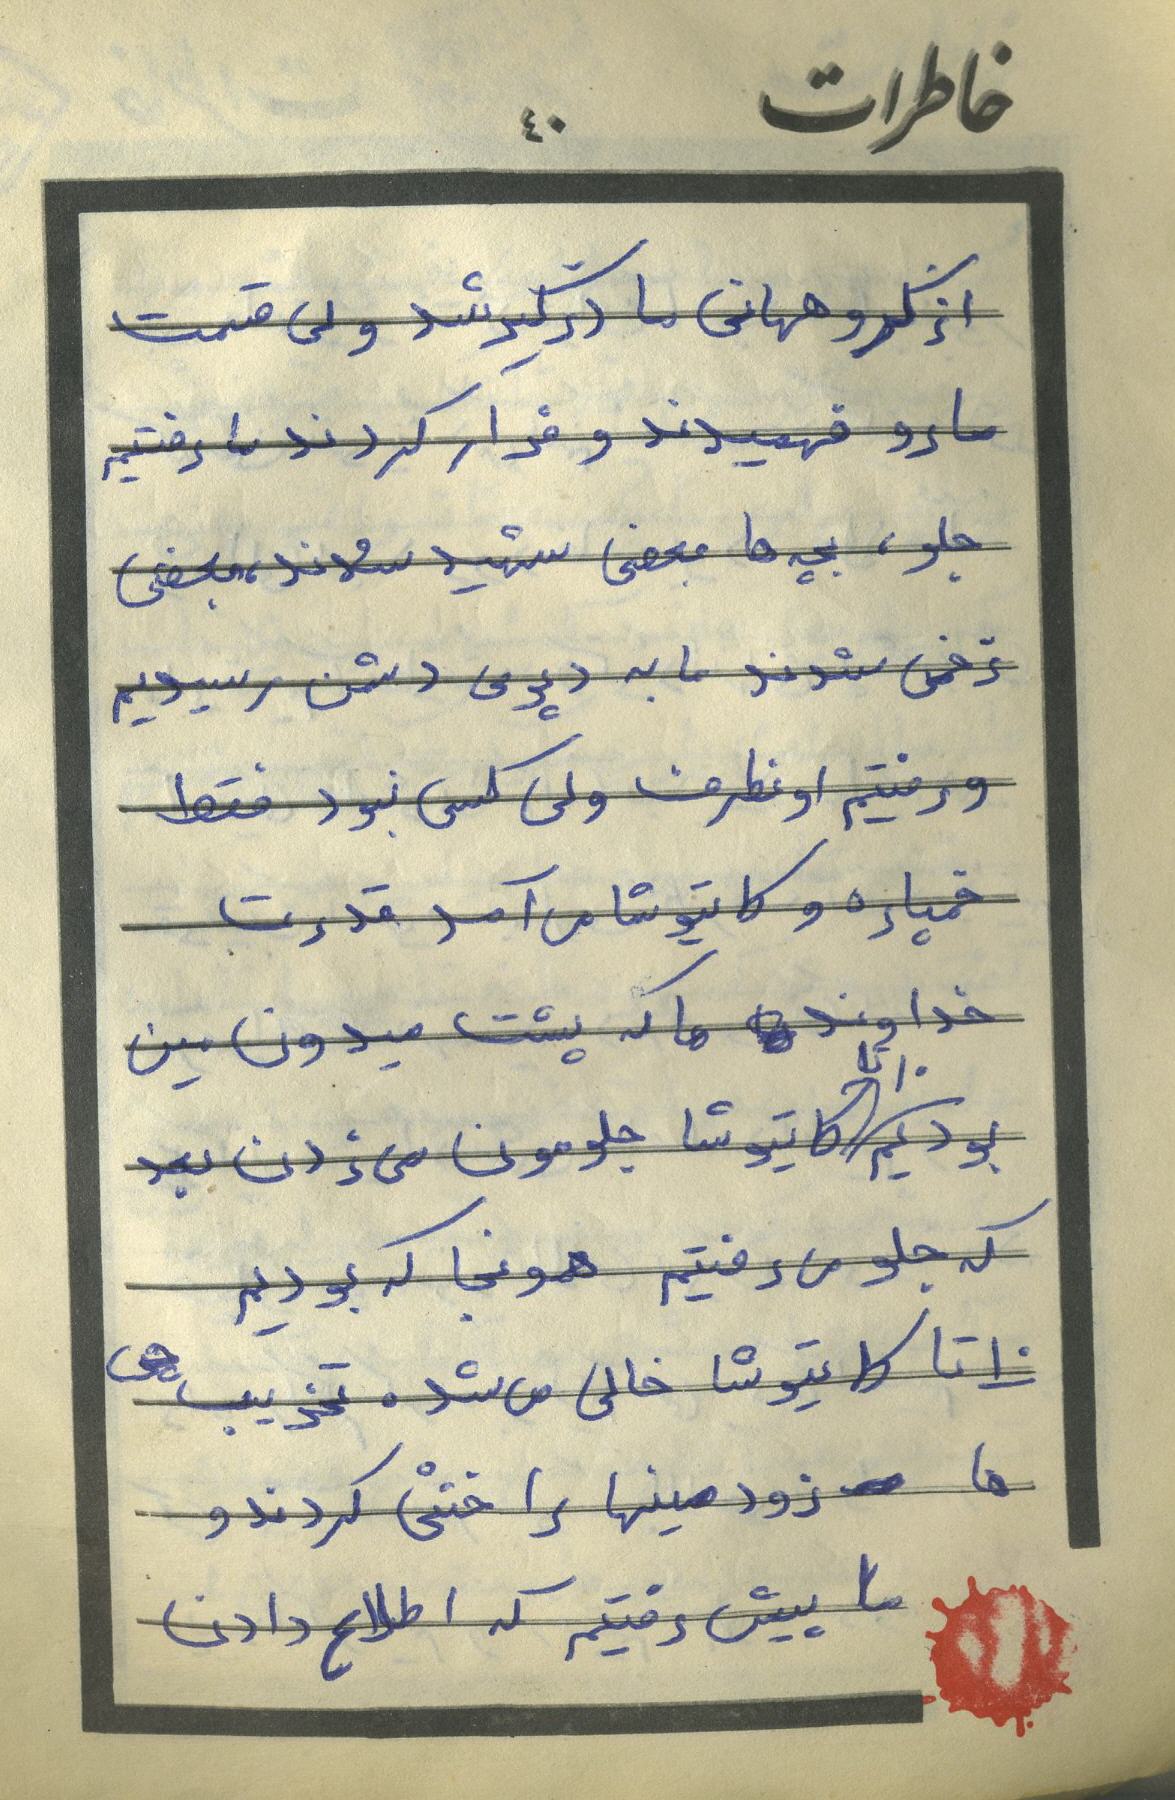 خاطرات
٤٠
از گروههائی ما درگیر شد ولی قسمت
ما رو فهمیدند و فرار کردند ما رفتیم
جلو، بچه ها بعضی شهید شدند، بعضی
زخمی شدند ما به دپوی دشمن رسیدیم
و رفتیم اونطرف ولی کسی نبود فقط
خمپاره و کاتیوشا می آمد قدرت
خداوند ما که پشت میدون مین
بودیم ۱۰ تا کاتیوشا جلومون می زدن بعد
که جلو می رفتیم همونجا که بودیم
۱۰ تا کاتیوشا خالی می شده تخریب چی
ها زود مینها را خنثی کردند و
ما پیش رفتیم که اطلاع دادن